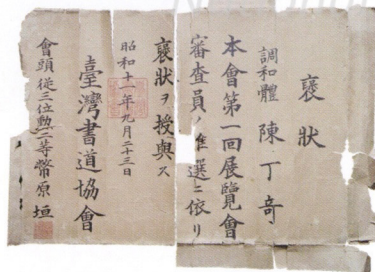 褒狀
調和體 陳丁奇
本會第一回展覽會
審查員ノ推選ニ依リ
褒狀ヲ授與ス
昭和十一年九月二十三日
臺灣書道協會
會頭從三位勳二等幣原坦